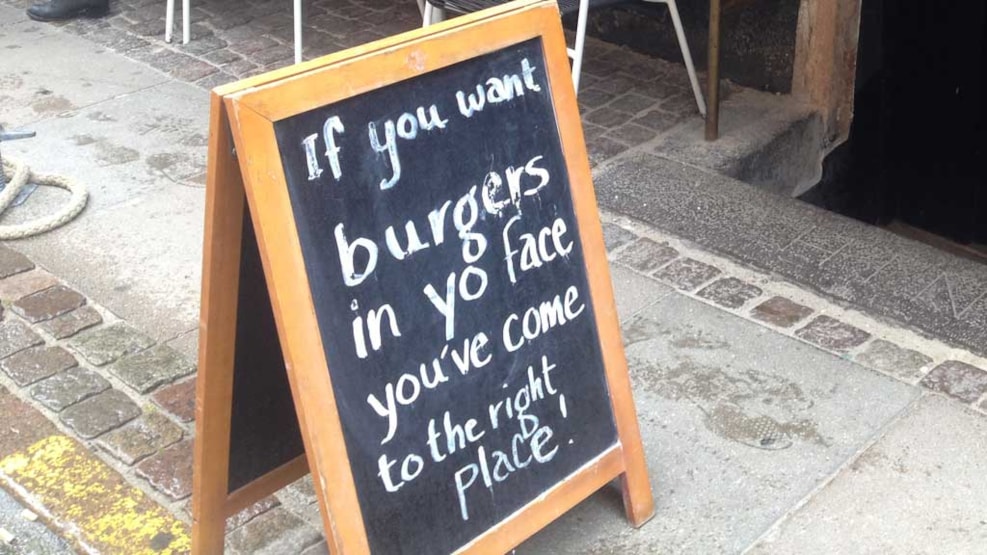 If you want
burgers
in yo face
you've come
to the right
place!